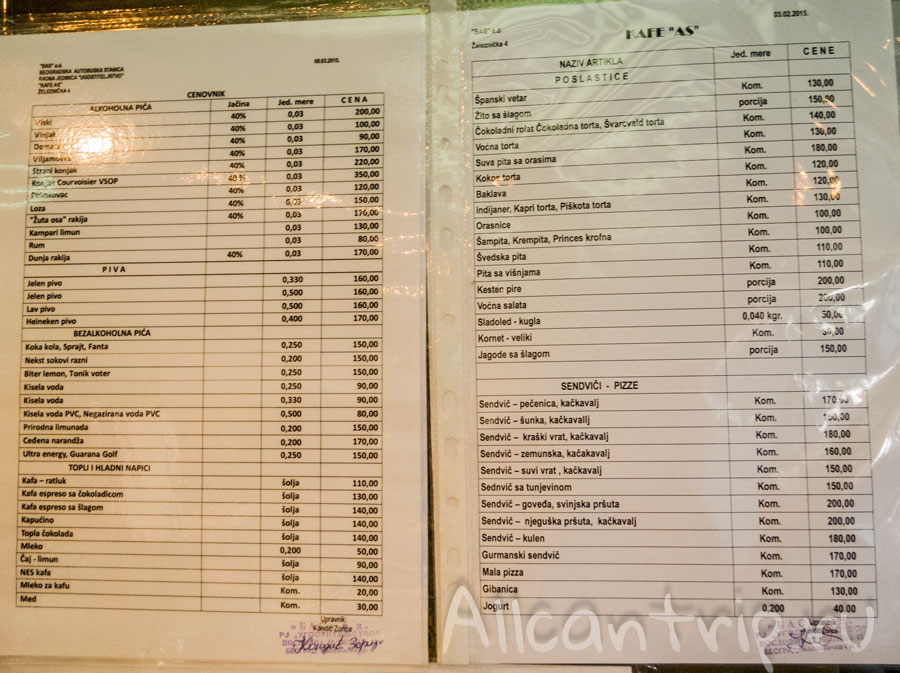 "BAS" a.d.
BEOGRADSKA AUTOBUSKA STANICA
RADNA JEDINICA "UGOSTITELJSTVO"
"KAFE AS"
ŽELEZNIČKA 4
CENOVNIK
ALKOHOLNA PIĆA Jačina Jed. mere CENA
Viski 40% 0,03 200,00
Vinjak 40% 0,03 100,00
40% 0,03 90,00
Viljamovka 40% 0,03 170,00
Strani konjak 40% 0,03 220,00
Konjak Courvoisier VSOP 40% 0,03 350,00
Pelinkovac 40% 0,03 120,00
Loza 40% 0,03 150,00
"Žuta osa" rakija 40% 0,03 170,00
Kampari limun 0,03 130,00
Rum 0,03 80,00
Dunja rakija 40% 0,03 170,00
PIVA
Jelen pivo 0,330 160,00
Jelen pivo 0,500 160,00
Lav pivo 0,500 160,00
Heineken pivo 0,400 170,00
BEZALKOHOLNA PIĆA
Koka kola, Sprajt, Fanta 0,250 150,00
Nekst sokovi razni 0,200 150,00
Biter lemon, Tonik voter 0,250 150,00
Kisela voda 0,250 90,00
Kisela voda 0,330 90,00
Kisela voda PVC, Negazirana voda PVC 0,500 80,00
Prirodna limunada 0,200 150,00
Ceđena narandža 0,200 170,00
Ultra energy, Guarana Golf 0,250 150,00
TOPLI I HLADNI NAPICI
Kafa – ratluk šolja 110,00
Kafa espreso sa čokoladicom šolja 130,00
Kafa espreso sa šlagom šolja 140,00
Kapučino šolja 140,00
Topla čokolada šolja 140,00
Mleko 0,200 50,00
Čaj - limun šolja 90,00
NES kafa šolja 140,00
Mleko za kafu Kom. 20,00
Med Kom. 30,00
Upravnik
Kandić Zorica
"BAS" a.d. 03.02.2015.
Železnička 4
KAFE "AS"
NAZIV ARTIKLA Jed. mere CENE
POSLASTICE
Španski vetar Kom. 130,00
Žito sa šlagom porcija 150,00
Čokoladni rolat Čokoladna torta, Švarcvald torta Kom. 140,00
Voćna torta Kom. 130,00
Suva pita sa orasima Kom. 180,00
Kokos torta Kom. 120,00
Baklava Kom. 120,00
Indijaner, Kapri torta, Piškota torta Kom. 130,00
Orasnice Kom. 100,00
Šampita, Krempita, Princes krofna Kom. 100,00
Švedska pita Kom. 110,00
Pita sa višnjama Kom. 110,00
Kesten pire porcija 200,00
Voćna salata porcija 200,00
Sladoled - kugla 0,040 kgr. 50,00
Kornet - veliki Kom.
Jagode sa šlagom porcija 150,00
SENDVIČI - PIZZE
Sendvič – pečenica, kačkavalj Kom. 170,00
Sendvič – šunka, kačkavalj Kom.
Sendvič – kraški vrat, kačkavalj Kom. 180,00
Sendvič – zemunska, kačakavalj Kom. 160,00
Sendvič – suvi vrat , kačkavalj Kom. 150,00
Sednvič sa tunjevinom Kom. 150,00
Sendvič – goveđa, svinjska pršuta Kom. 200,00
Sendvič – njeguška pršuta, kačkavalj Kom. 200,00
Sendvič – kulen Kom. 180,00
Gurmanski sendvič Kom. 170,00
Mala pizza Kom. 170,00
Gibanica Kom. 130,00
Jogurt 0,200 40,00
Upravnik
Allcantrip.ru